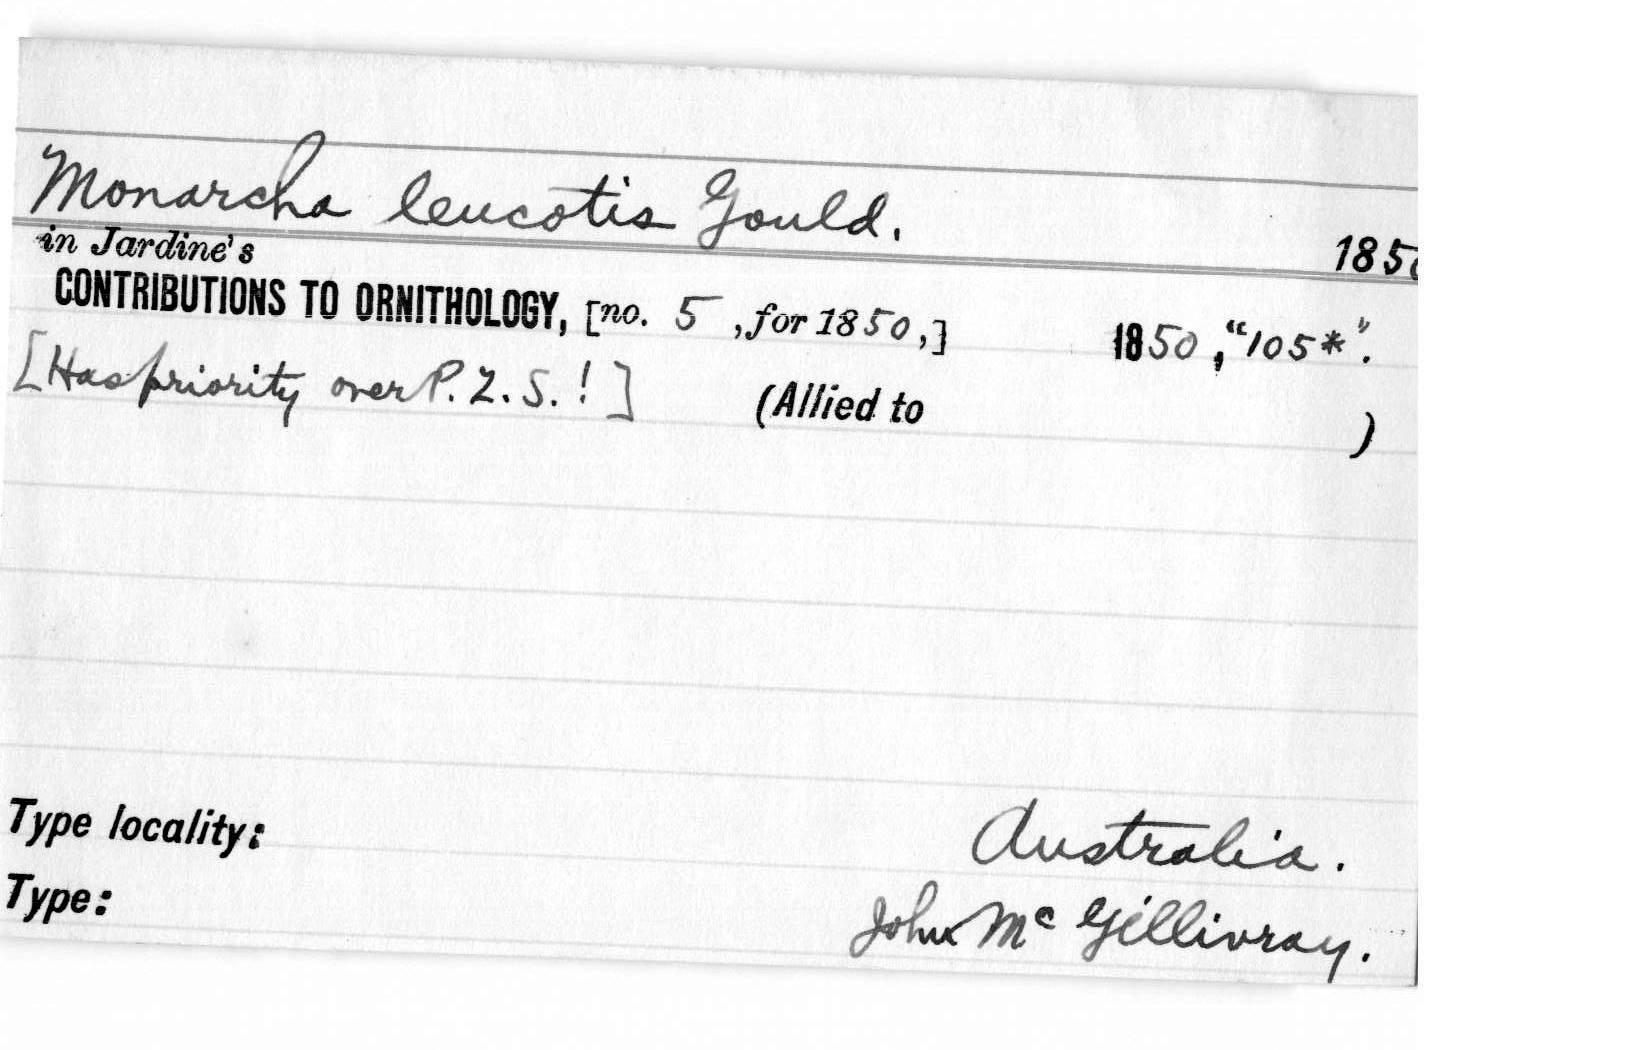 Monarcha leucotis Gould.
in Jardine's 185
CONTRIBUTIONS TO ORNITHOLOGY, [no. 5, for 1850,] 1850, "105*".
[Has priority over P.Z.S.!] (Allied to )
Type locality: Australia.
Type: John Mc Gillivray.